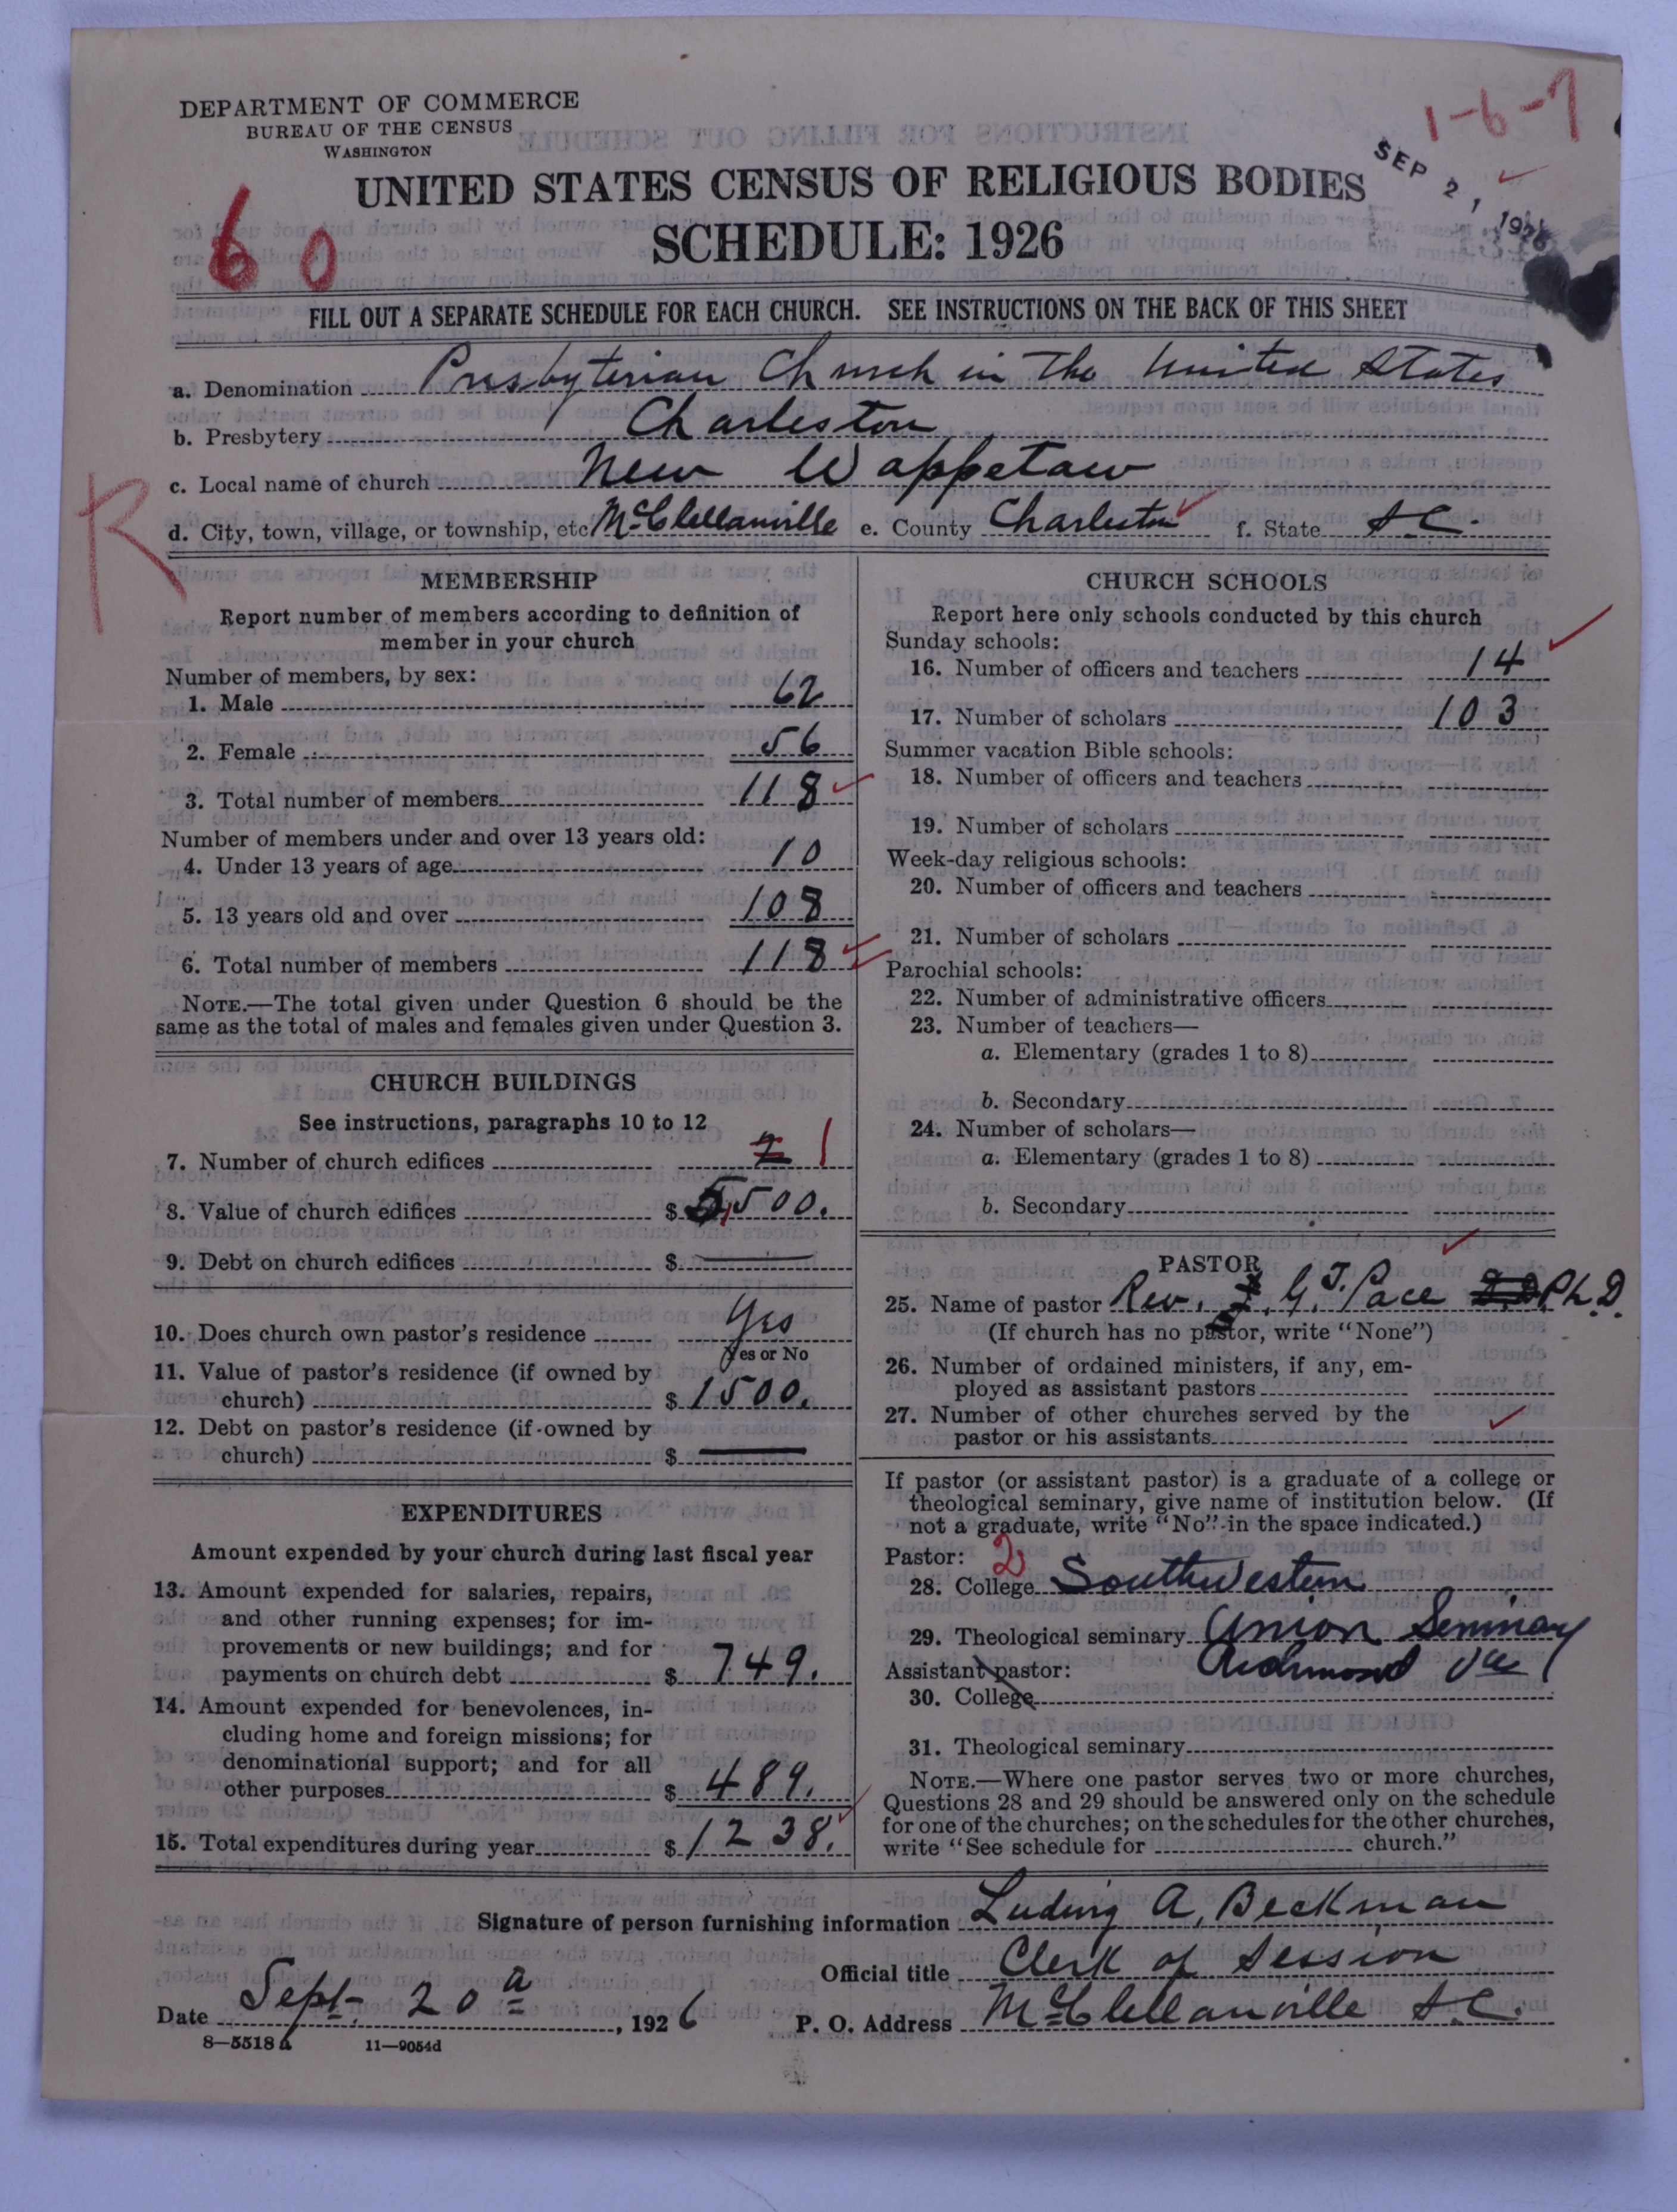 DEPARTMENT OF COMMERCE
BUREAU OF THE CENSUS
WASHINGTON
1-6-7
SEP 21 1926
UNITED STATES CENSUS OF RELIGIOUS BODIES
SCHEDULE: 1926
60
FILL OUT A SEPARATE SCHEDULE FOR EACH CHURCH. SEE INSTRUCTIONS ON THE BACK OF THIS SHEET
a. Denomination Presbyterian Church in The United States
b. Presbytery Charleston
c. Local name of church New Wappetaw
R
d. City, town, village, or township, etc McClellanville e. County Charleston f. State S.C.
MEMBERSHIP
Report number of members according to definition of
member in your church
Number of members, by sex:
1. Male 62
2. Female 56
3. Total number of members 118
Number of members under and over 13 years old:
4. Under 13 years of age 10
5. 13 years old and over 108
6. Total number of members 118
NOTE.—The total given under Question 6 should be the
same as the total of males and females given under Question 3.
CHURCH BUILDINGS
See instructions, paragraphs 10 to 12
7. Number of church edifices 2 1
8. Value of church edifices $ 5,500.
9. Debt on church edifices $ —
10. Does church own pastor's residence Yes
Yes or No
11. Value of pastor's residence (if owned by
church) $ 1500.
12. Debt on pastor's residence (if owned by
church) $ —
EXPENDITURES
Amount expended by your church during last fiscal year
13. Amount expended for salaries, repairs,
and other running expenses; for im-
provements or new buildings; and for
payments on church debt $ 749.
14. Amount expended for benevolences, in-
cluding home and foreign missions; for
denominational support; and for all
other purposes $ 489.
15. Total expenditures during year $ 1238.
CHURCH SCHOOLS
Report here only schools conducted by this church
Sunday schools:
16. Number of officers and teachers 14
17. Number of scholars 103
Summer vacation Bible schools:
18. Number of officers and teachers
19. Number of scholars
Week-day religious schools:
20. Number of officers and teachers
21. Number of scholars
Parochial schools:
22. Number of administrative officers
23. Number of teachers—
a. Elementary (grades 1 to 8)
b. Secondary
24. Number of scholars—
a. Elementary (grades 1 to 8)
b. Secondary
PASTOR
25. Name of pastor Rev. G. T. Pace Ph.D.
(If church has no pastor, write "None")
26. Number of ordained ministers, if any, em-
ployed as assistant pastors
27. Number of other churches served by the
pastor or his assistants
If pastor (or assistant pastor) is a graduate of a college or
theological seminary, give name of institution below. (If
not a graduate, write "No" in the space indicated.)
Pastor: 2
28. College Southwestern
29. Theological seminary Union Seminary
Assistant pastor: Richmond Va
30. College
31. Theological seminary
NOTE.—Where one pastor serves two or more churches,
Questions 28 and 29 should be answered only on the schedule
for one of the churches; on the schedules for the other churches,
write "See schedule for church."
Signature of person furnishing information Ludwig A. Beckman
Official title Clerk of Session
Date Sept. 20, 1926
P. O. Address McClellanville S.C.
8—5518 a 11—9054d